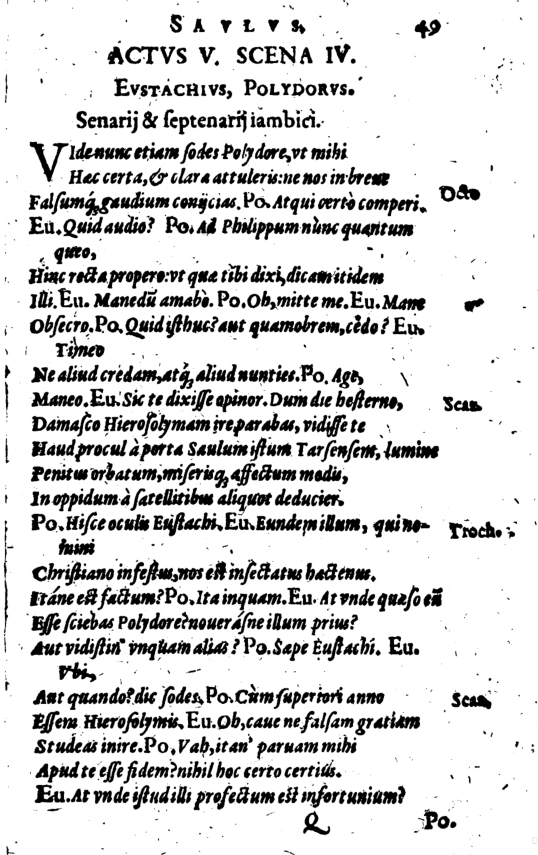 SAVLVS. 49
ACTVS V. SCENA IV.
EVSTACHIVS, POLYDORVS.
Senarij & septenarij iambici.
VIde nunc etiam sodes Polydore, vt mihi
Hac certa, & clara attuleris: ne nos in breue
Falsumq; gaudium conijcias. Po. Atqui certò comperi. Octo
Eu. Quid audio? Po. Ad Philippum nùnc quantum
queo,
Hinc recta propero: vt quæ tibi dixi, dicam itidem
Illi. Eu. Manedũ amabò. Po. Oh, mitte me. Eu. Mane
Obsecro. Po. Quid isthuc? aut quamobrem, cèdo? Eu.
Timeo
Ne aliud credam, atq; aliud nunties. Po. Age,
Maneo. Eu. Sic te dixisse opinor. Dum die hesterno, Scaz.
Damasco Hierosolymam ire parabas, vidisse te
Haud procul à porta Saulum istum Tarsensem, lumine
Penitus orbatum, miserisq; affectum modis,
In oppidum à satellitibus aliquot deducier.
Po. Hisce oculis Eustachi. Eu. Eundem illum, qui no- Troch.
mini
Christiano infestus, nos est insectatus hactenus.
Itáne est factum? Po. Ita inquam. Eu. At vnde quæso eũ
Esse sciebas Polydore? noueràsne illum prius?
Aut vidistin' vnquam alias? Po. Sæpe Eustachi. Eu.
Vbi,
Aut quando? dic sodes. Po. Cùm superiori anno Scaz.
Essem Hierosolymis. Eu. Oh, caue ne falsam gratiam
Studeas inire. Po. Vah, itan' paruam mihi
Apud te esse fidem? nihil hoc certo certius.
Eu. At vnde istud illi profectum est infortunium?
Q Po.